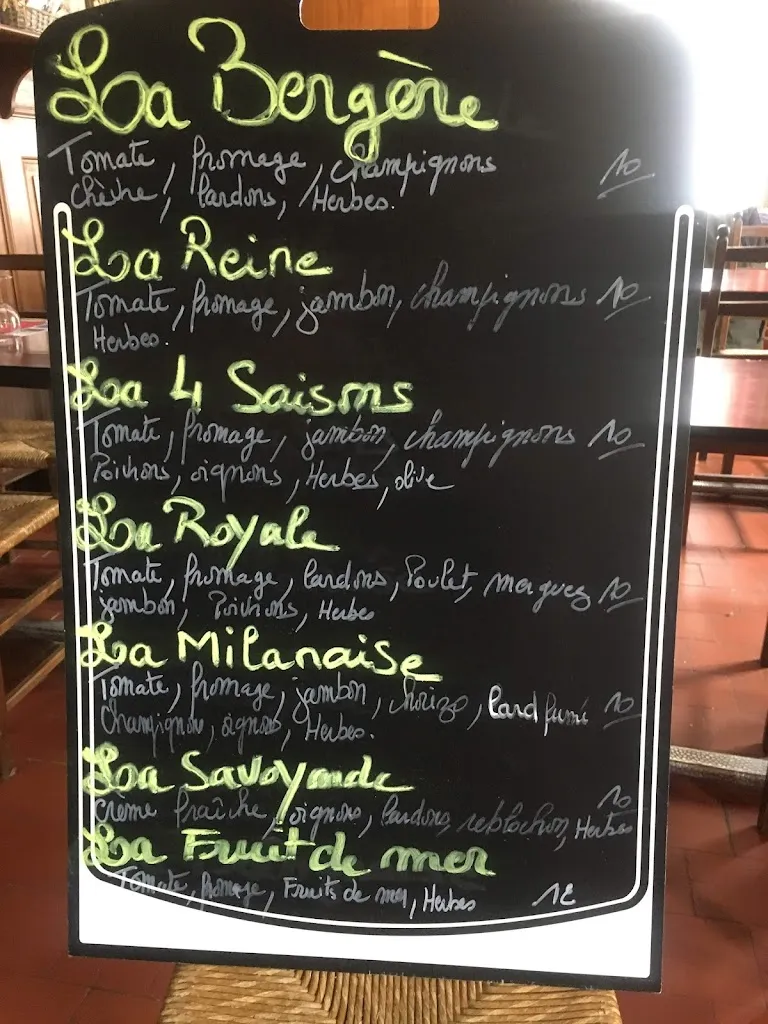 La Bergère
Tomate, fromage, champignons 10
chèvre, lardons, Herbes.
La Reine
Tomate, fromage, jambon, champignons 10
Herbes.
La 4 Saisons
Tomate, fromage, jambon, champignons 10
Poivrons, oignons, Herbes, olive
La Royale
Tomate, fromage, lardons, Poulet, merguez 10
jambon, Poivrons, Herbes
La Milanaise
Tomate, fromage, jambon, chorizo, Lard fumé 10
Champignons, oignons, Herbes.
La Savoyarde
10
creme fraîche, oignons, lardons, reblochon, Herbes
La Fruit de mer
Tomate, fromage, Fruits de mer, Herbes 12